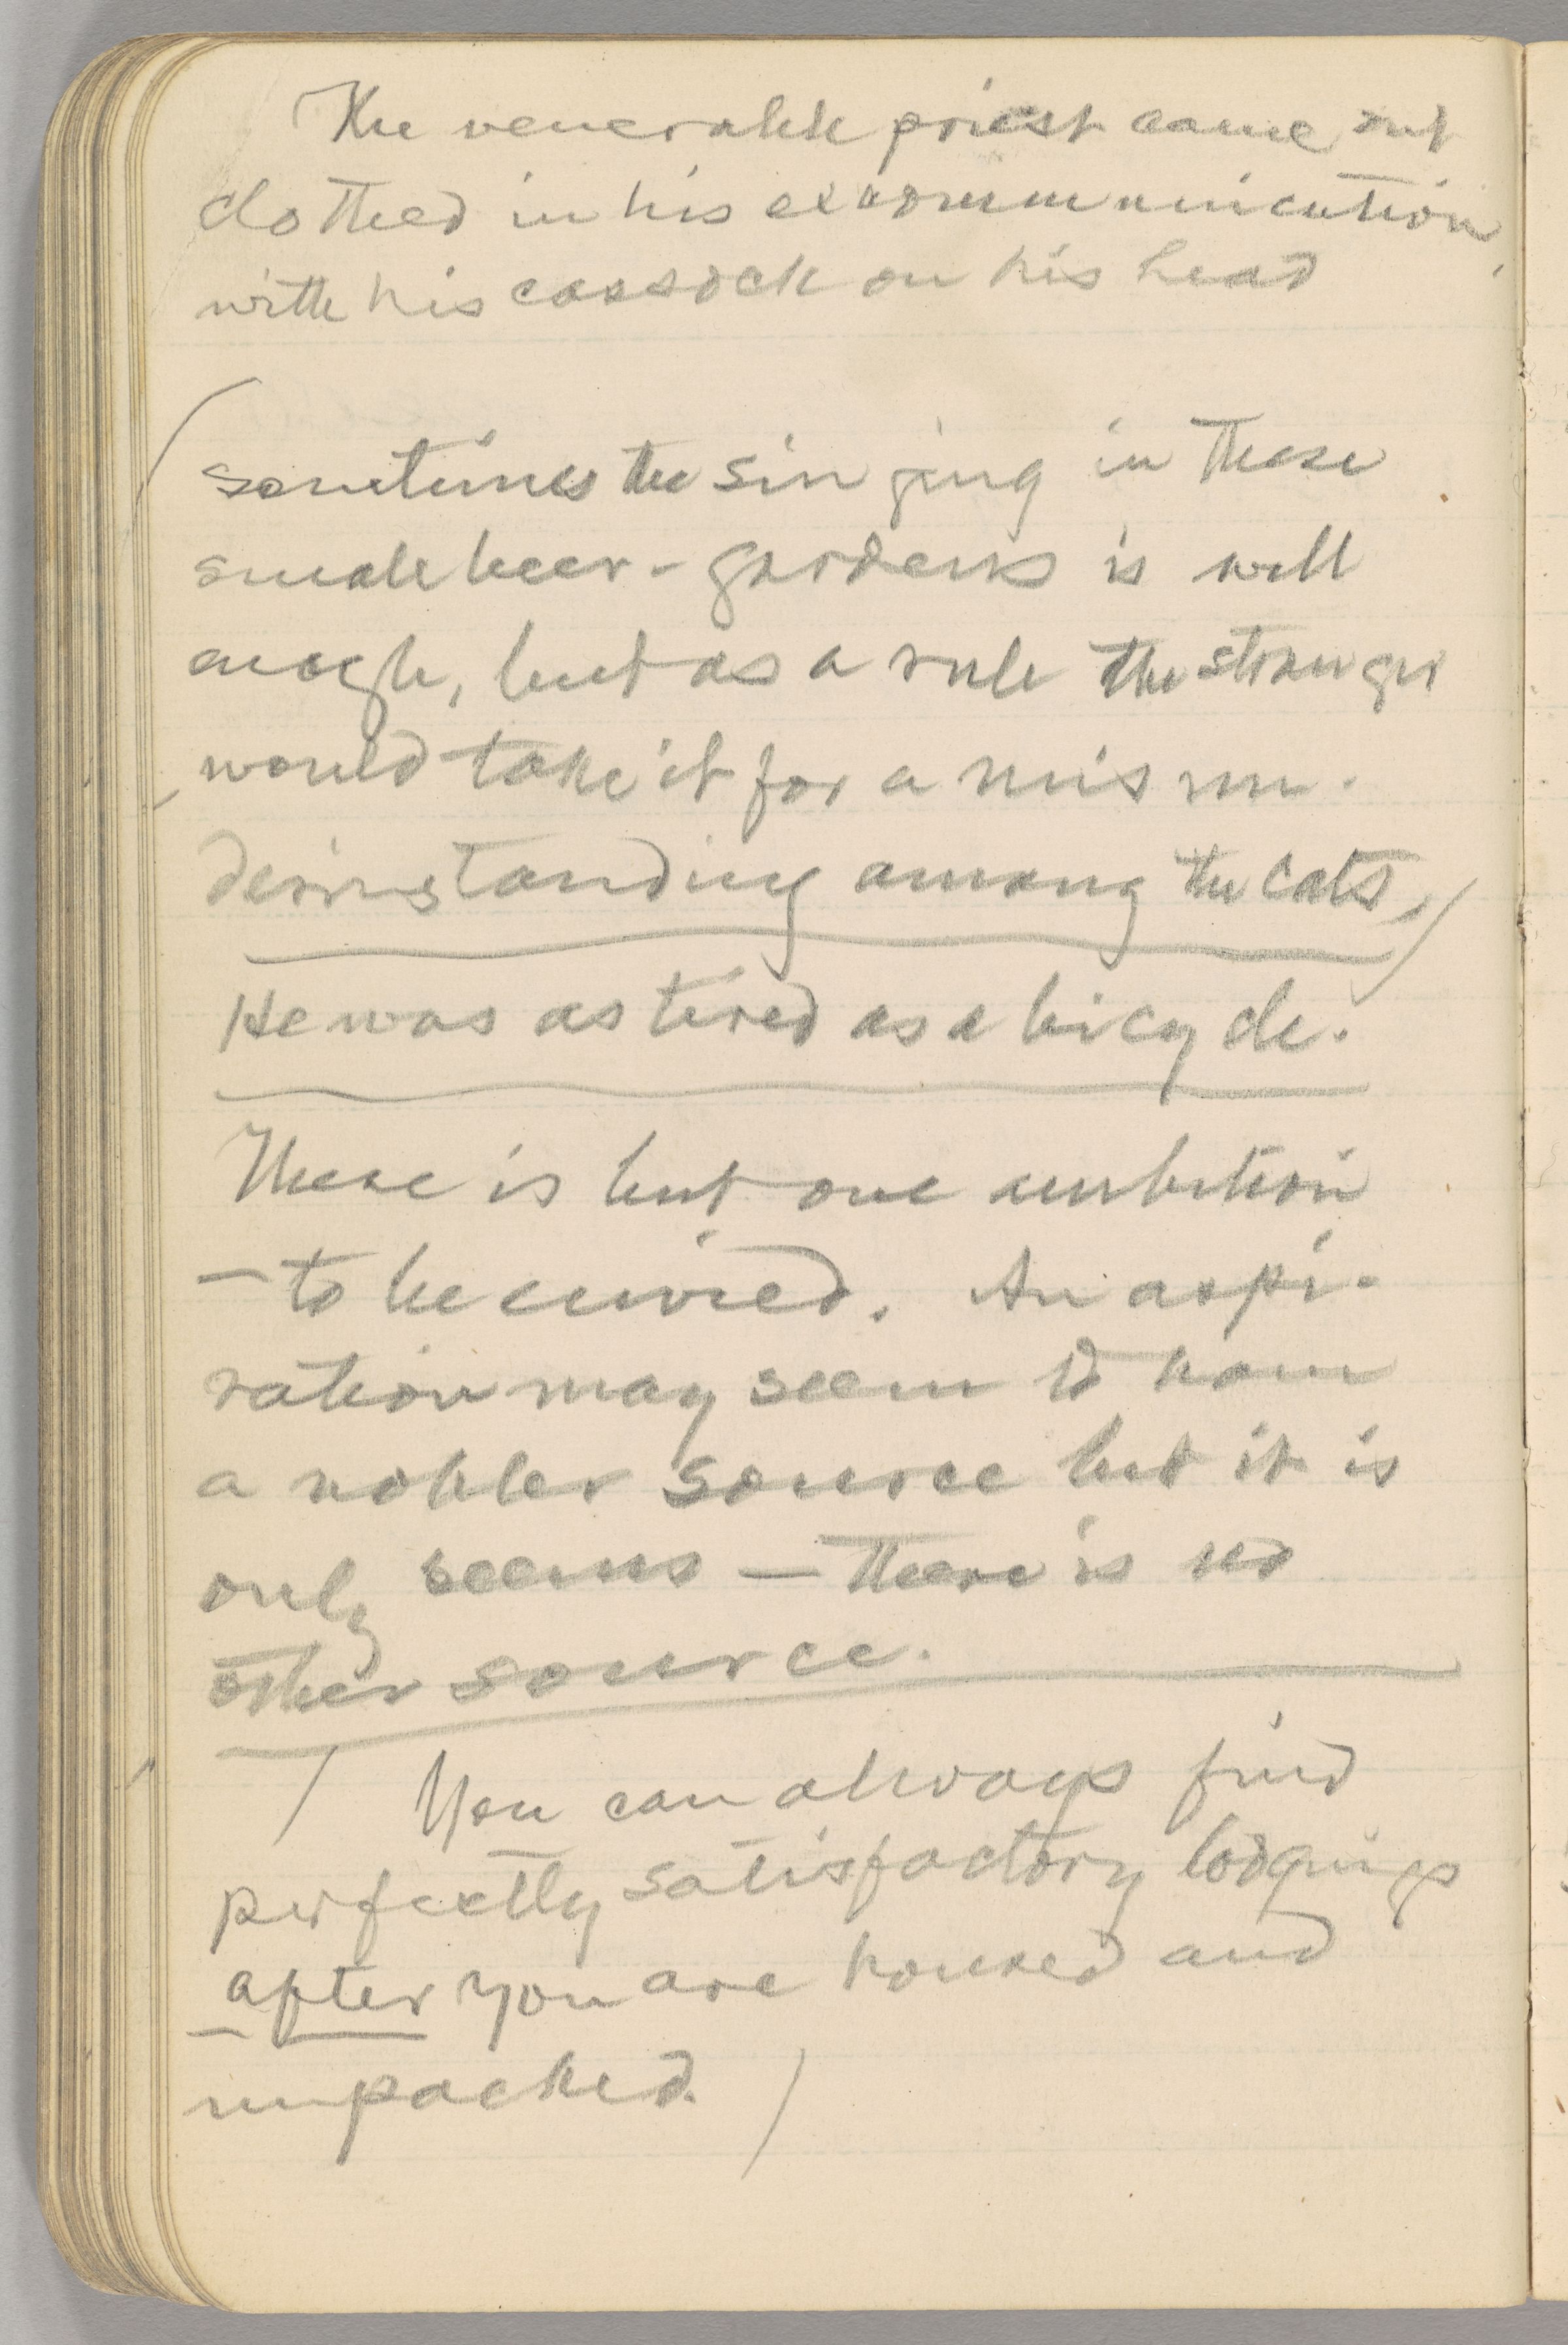 The venerable priest came out
clothed in his excommunication,
with his cassock on his head
(sometimes the singing in these
small beer-gardens is well
enough, but as a rule the stranger
would take it for a misun-
derstanding among the cats.)
He was as tired as a bicycle.
There is but one ambition
— to be envied. An aspi-
ration may seem to have
a nobler source but it is
only seems — there is no
other source.
/ You can always find
perfectly satisfactory lodgings
after you are housed and
unpacked. /